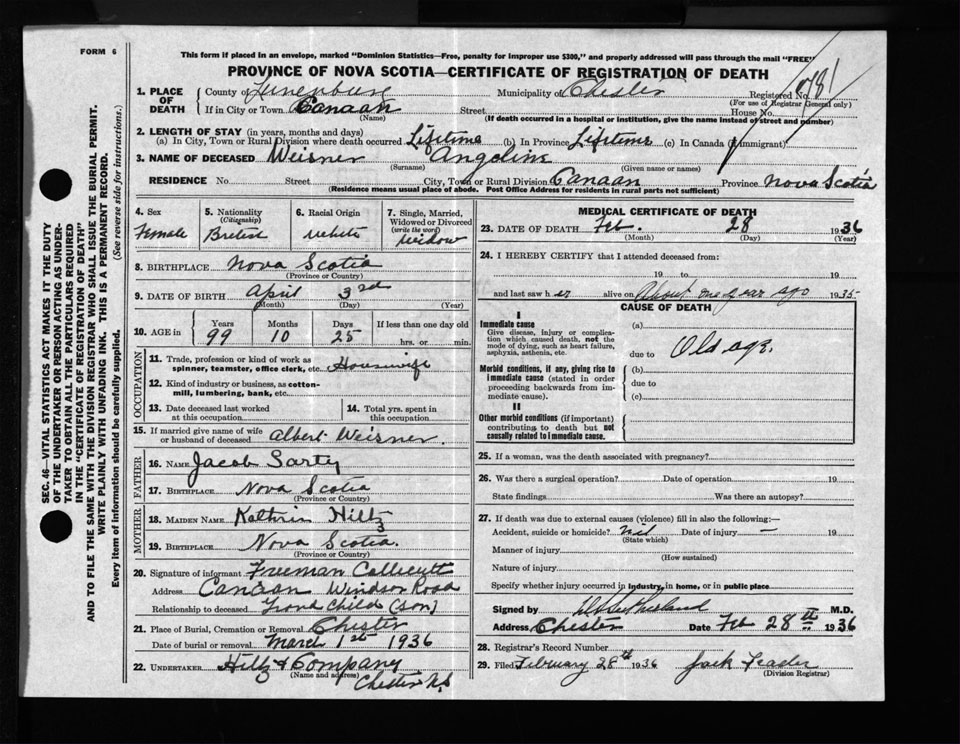 FORM 6
This form if placed in an envelope, marked "Dominion Statistics—Free, penalty for improper use $300," and properly addressed will pass through the mail "FREE"
PROVINCE OF NOVA SCOTIA—CERTIFICATE OF REGISTRATION OF DEATH
1. PLACE OF DEATH County of Lunenburg Municipality of Chester Registered No. 781
(For use of Registrar General only)
If in City or Town Canaan Street House No.
(Name) (If death occurred in a hospital or institution, give the name instead of street and number)
2. LENGTH OF STAY (in years, months and days)
(a) In City, Town or Rural Division where death occurred Lifetime (b) In Province Lifetime (c) In Canada (if immigrant)
3. NAME OF DECEASED Weisner Angeline
(Surname) (Given name or names)
RESIDENCE No. Street City, Town or Rural Division Canaan Province Nova Scotia
(Residence means usual place of abode. Post Office Address for residents in rural parts not sufficient)
SEC. 46—VITAL STATISTICS ACT MAKES IT THE DUTY
OF THE UNDERTAKER OR PERSON ACTING AS UNDER-
TAKER TO OBTAIN ALL THE PARTICULARS REQUIRED
IN THE "CERTIFICATE OF REGISTRATION OF DEATH"
AND TO FILE THE SAME WITH THE DIVISION REGISTRAR WHO SHALL ISSUE THE BURIAL PERMIT.
WRITE PLAINLY WITH UNFADING INK. THIS IS A PERMANENT RECORD.
Every item of information should be carefully supplied. (See reverse side for instructions.)
4. Sex
Female
5. Nationality
(Citizenship)
British
6. Racial Origin
white
7. Single, Married,
Widowed or Divorced
(write the word)
widow
8. BIRTHPLACE Nova Scotia
(Province or Country)
9. DATE OF BIRTH April 3rd
(Month) (Day) (Year)
10. AGE in Years Months Days If less than one day old
99 10 25 hrs. or min.
OCCUPATION
11. Trade, profession or kind of work as
spinner, teamster, office clerk, etc. Housewife
12. Kind of industry or business, as cotton-
mill, lumbering, bank, etc.
13. Date deceased last worked
at this occupation
14. Total yrs. spent in
this occupation
15. If married give name of wife
or husband of deceased Albert Weisner.
FATHER
16. NAME Jacob Sarty
17. BIRTHPLACE Nova Scotia
(Province or Country)
MOTHER
18. MAIDEN NAME Kathrin Hiltz
19. BIRTHPLACE Nova Scotia.
(Province or Country)
20. Signature of informant Freeman Callicutt
Address Canaan Windsor Road
Relationship to deceased Grand child (son)
21. Place of Burial, Cremation or Removal Chester
Date of burial or removal March 1st 1936
22. UNDERTAKER Hiltz & Company
(Name and address) Chester N.S
MEDICAL CERTIFICATE OF DEATH
23. DATE OF DEATH Feb. 28 1936
(Month) (Day) (Year)
24. I HEREBY CERTIFY that I attended deceased from:
19 to 19
and last saw her alive on About one year ago 1935
CAUSE OF DEATH
I
Immediate cause
Give disease, injury or complica-
tion which caused death, not the
mode of dying, such as heart failure,
asphyxia, asthenia, etc.
(a)
due to Old age.
Morbid conditions, if any, giving rise to
immediate cause (stated in order
proceeding backwards from im-
mediate cause).
(b)
due to
(c)
II
Other morbid conditions (if important)
contributing to death but not
causally related to immediate cause.
25. If a woman, was the death associated with pregnancy?
26. Was there a surgical operation? Date of operation 19
State findings Was there an autopsy?
27. If death was due to external causes (violence) fill in also the following:
Accident, suicide or homicide? nil Date of injury — 19
(State which)
Manner of injury
(How sustained)
Nature of injury
Specify whether injury occurred in industry, in home, or in public place
Signed by M.D.
Address Chester Date Feb 28th 1936
28. Registrar's Record Number
29. Filed February 28th 1936 Jack
(Division Registrar)